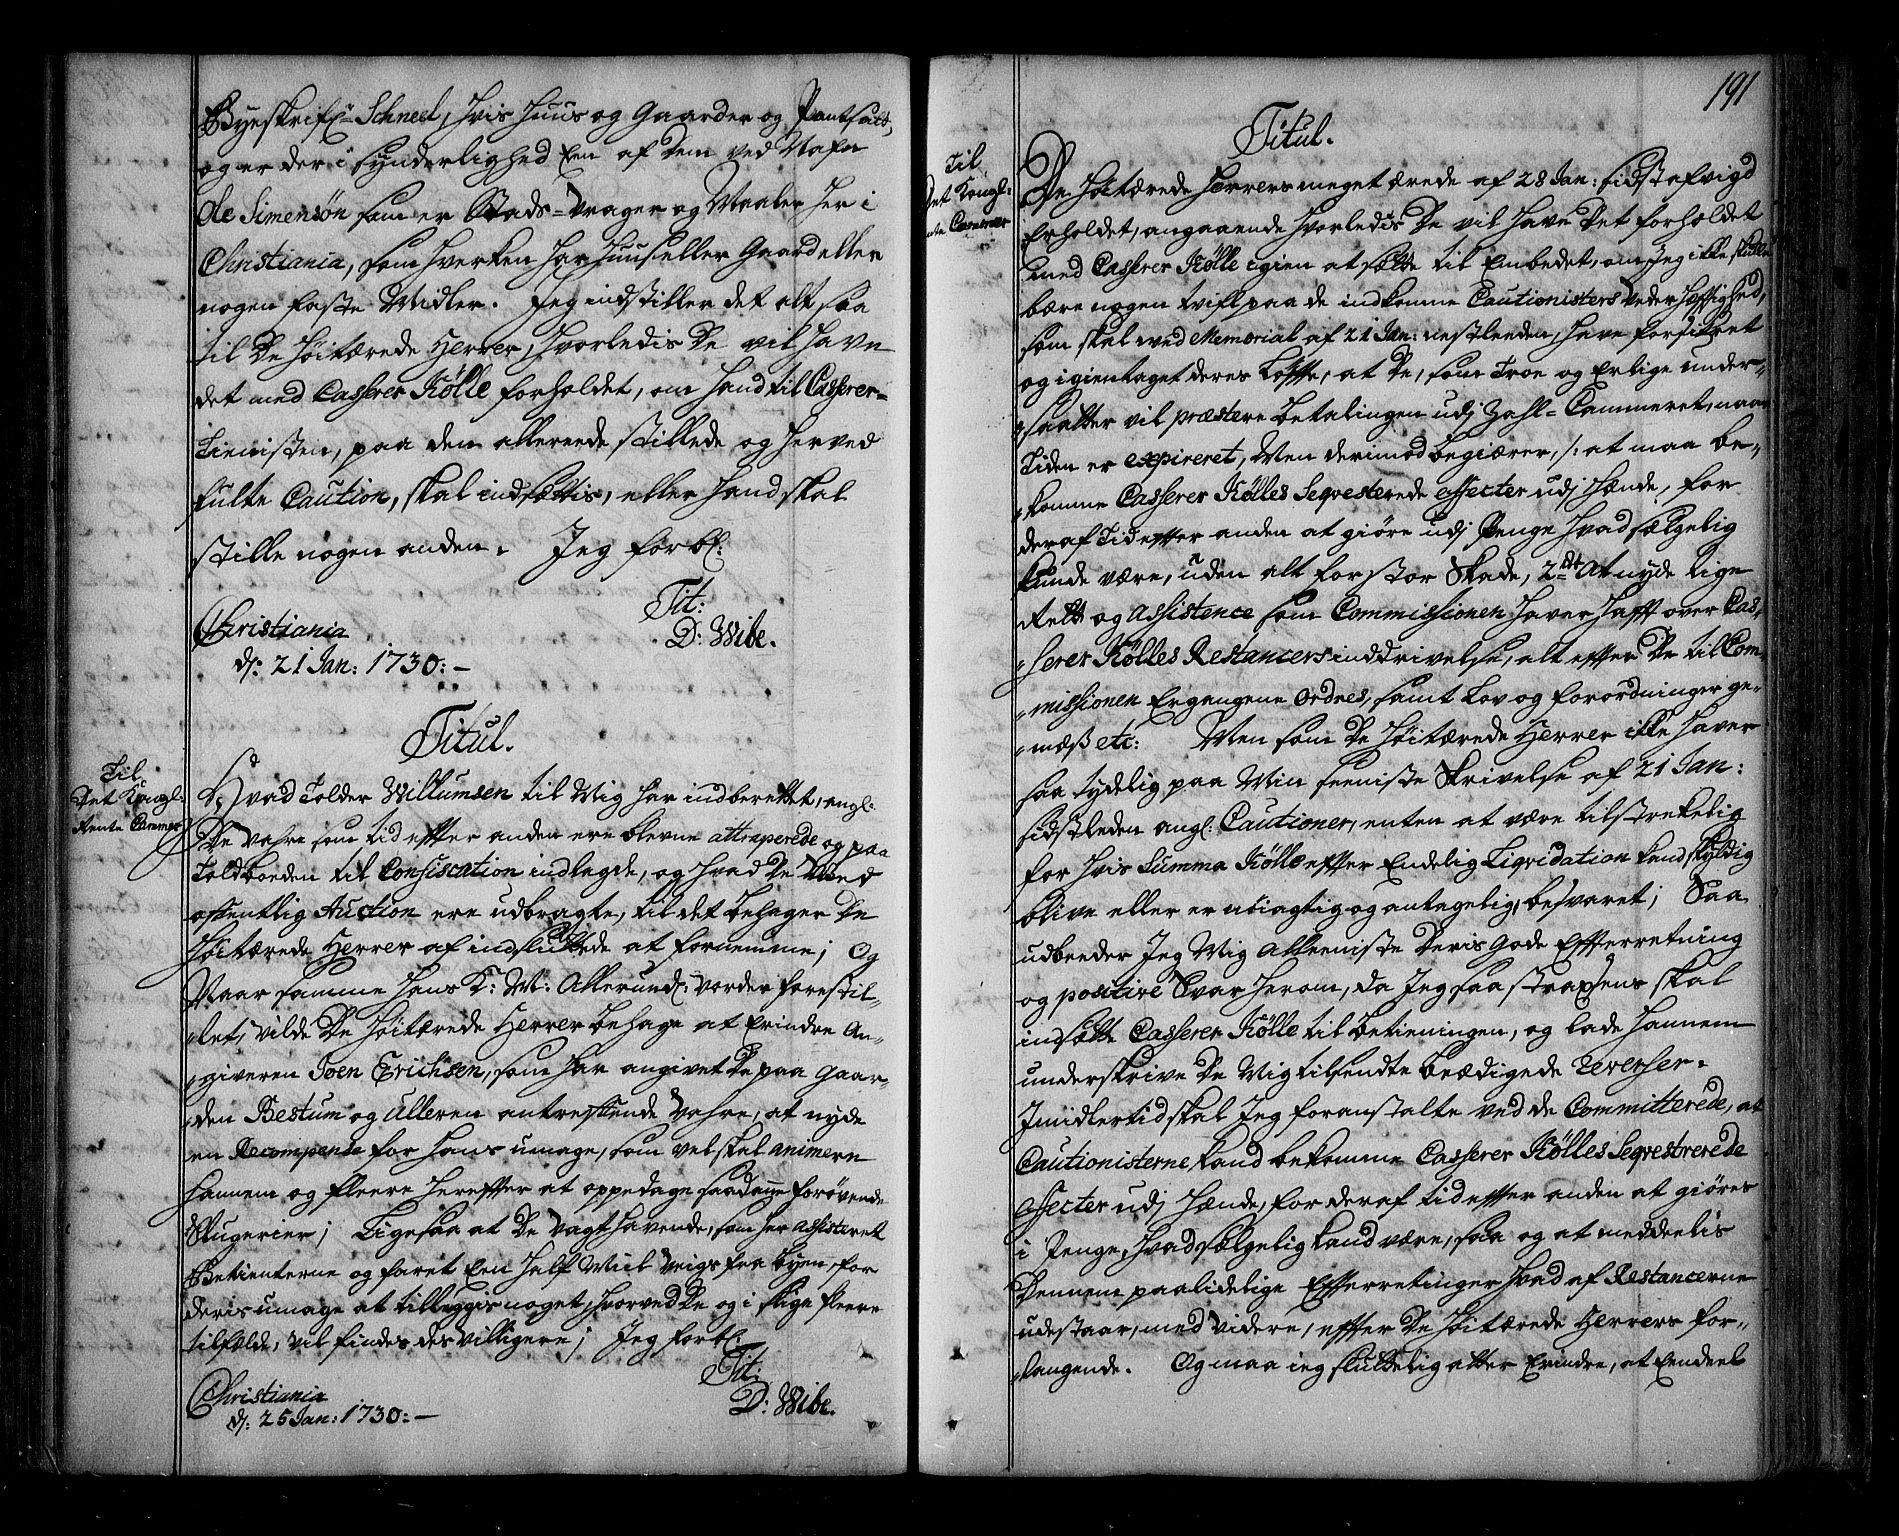 Byeskrifr: Schneel, hvis Huus og Gaarder og Pantsatt,
og er der i synderlighed Een af dem ved Nafn
Ole Simensøn som er Stads-Vrager og Maaler her i
Christiania, som hverken har Huus eller Gaard eller
nogen faste Midler. Jeg indstiller det alt saa
til De Høitærede Herrer, hvorledis De vil have
det med Casserer Kølle forholdet, om hand til Casserer-
Tienisten, paa den allereede stillede og herved
fulte Caution, skal indsættis, eller hand skal
stille nogen anden. Jeg forbl:
Tit:
Christiania
D: Wibe.
d: 21 Jan: 1730:-
Titul.
Til
Det Kongl:
Rente Cammer
Hvad Tolder Willumsen til Mig har indberettet, angl:
De Vahre som tid effter anden ere blevne attraperede og paa
Toldboeden til Confiscation indlagde, og hvad De Med
offentlig Auction ere udbragte, til det behager De
Høitærede Herrer af indsluttede at fornemme; Og
Naar samme Hans K: M: Allerund: vorder forestil-
let, vilde De Høitærede Herrer behage at Erindre An-
giveren Joen Erichsen, som har angivet De paa Gaar-
den Bestum og Ulleren antreffende Vahre, at nyde
en Recompense for hans umage, som vel skal animere
hannem og fleere hereffter at oppedage saadanne forøvende
Slugerier; Ligesaa at De Vagthavende, som her assisteret
Betienterne og faret Een Half Miil Veigs fra byen, for
deris umage at tilleggis noget, hvorved De og i slige fleere
tilfælde, vil findes des villigere; Jeg forbl:
Tit:
Christiania
D: Wibe.
d: 25 Jan: 1730:-
191
Titul.
Til
Det Kongl:
Rente Cammer
De Høitærede Herrers meget ærede af 28 Jan: sidst afvigd
Erholdet, angaaende hvorledis De vil have Det forholdet
med Casserer Kølle igien at sætte til Embedet, om Jeg ikke skulle
bære nogen tvifl paa de indkomne Cautionisters Vederhæfftighed,
som skal med Memorial af 21 Jan: nestleeden, have forsikret
og igientaget deres Løffte, at De, som Troe og Erlige under-
saatter vil præstere betalingen udj Zahl-Cammeret, naar
Tiden er expireret, Men derimod begiærer, /: at maa be-
komme Casserer Kølles Seqvesterede effecter udj hænde, for
deraf Tid effter anden at giøre udj Penge hvad sælgelig
kunde være, uden alt for stor Skade, 2det At nyde lige
Rett og assistence som Commissionen haver hafft over Cas-
serer Kølles Restancers inddrivelse, alt effter De til Com-
missionen Ergangene Ordres, samt Lov og forordninger ge-
mæss etc: Men som De Høitærede Herrer ikke haver
saa tydelig paa Min seeniste Skrivelse af 21 Jan:
sidstleden angl: Cautioner, enten at være tilstrekelig
for hvis Summa Kølle effter Endelig Liqvidation kand skyldig
blive eller er nøiagtig og antagelig, besvaret; Saa
udbeeder Jeg Mig Alleeniste Deris Gode Effterretning
og positive Svar herom, da Jeg saa straxsens skal
indsætte Casserer Kølle til betieningen, og lade hannem
underskrive De Mig tilsendte beædigede Reverser.
Imidlertid skal Jeg foranstalte ved de Committerede, at
Cautionisterne kand bekomme Casserer Kølles Seqvestrerede
effecter udj hænde, for deraf tid effter anden at giøres
i Penge, hvad sælgelig kand være, saa og at meddeelis
Dennem paalidelige Effterretninger hvad af Restancerne
udestaar, med videre, effter De Høitærede Herrers for-
langende. Og maa ieg sluttelig atter Erindre, at Eendeel